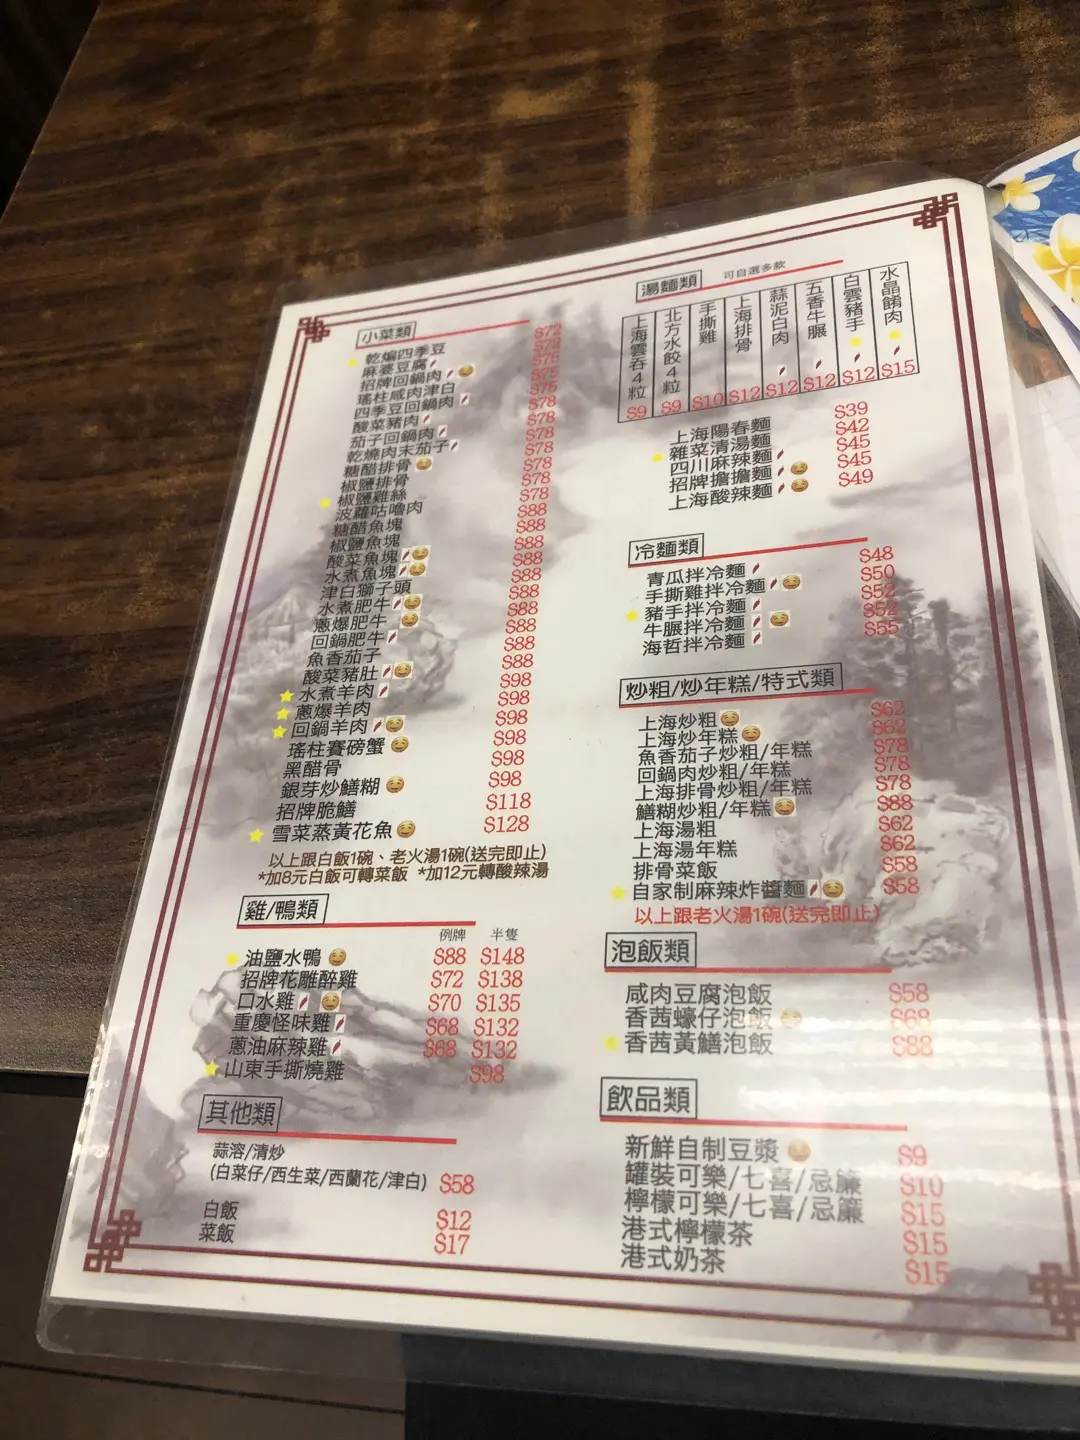 小菜類
乾煸四季豆 $72
麻婆豆腐 $72
招牌回鍋肉 $75
瑤柱咸肉津白 $75
四季豆回鍋肉 $75
酸菜豬肉 $78
茄子回鍋肉 $78
乾燒肉末茄子 $78
糖醋排骨 $78
椒鹽排骨 $78
椒鹽雞絲 $78
波蘿咕嚕肉 $78
糖醋魚塊 $88
椒鹽魚塊 $88
酸菜魚塊 $88
水煮魚塊 $88
津白獅子頭 $88
水煮肥牛 $88
蔥爆肥牛 $88
回鍋肥牛 $88
魚香茄子 $88
酸菜豬肚 $88
水煮羊肉 $98
蔥爆羊肉 $98
回鍋羊肉 $98
瑤柱賽磅蟹 $98
黑醋骨 $98
銀芽炒鱔糊 $98
招牌脆鱔 $118
雪菜蒸黃花魚 $128
以上跟白飯1碗、老火湯1碗(送完即止)
*加8元白飯可轉菜飯 *加12元轉酸辣湯
雞/鴨類
例牌 半隻
油鹽水鴨 $88 $148
招牌花雕醉雞 $72 $138
口水雞 $70 $135
重慶怪味雞 $68 $132
蔥油麻辣雞 $68 $132
山東手撕燒雞 $98
其他類
蒜溶/清炒
(白菜仔/西生菜/西蘭花/津白) $58
白飯 $12
菜飯 $17
湯麵類 可自選多款
上海雲吞4粒 $9
北方水餃4粒 $9
手撕雞 $10
上海排骨 $12
蒜泥白肉 $12
五香牛𦟌 $12
白雲豬手 $12
水晶餚肉 $15
上海陽春麵 $39
雜菜清湯麵 $42
四川麻辣麵 $45
招牌擔擔麵 $45
上海酸辣麵 $49
冷麵類
青瓜拌冷麵 $48
手撕雞拌冷麵 $50
豬手拌冷麵 $52
牛𦟌拌冷麵 $52
海哲拌冷麵 $55
炒粗/炒年糕/特式類
上海炒粗 $62
上海炒年糕 $62
魚香茄子炒粗/年糕 $78
回鍋肉炒粗/年糕 $78
上海排骨炒粗/年糕 $78
鱔糊炒粗/年糕 $88
上海湯粗 $62
上海湯年糕 $62
排骨菜飯 $58
自家制麻辣炸醬麵 $58
以上跟老火湯1碗(送完即止)
泡飯類
咸肉豆腐泡飯 $58
香茜蠔仔泡飯 $68
香茜黃鱔泡飯 $88
飲品類
新鮮自制豆漿 $9
罐裝可樂/七喜/忌廉 $10
檸檬可樂/七喜/忌廉 $15
港式檸檬茶 $15
港式奶茶 $15